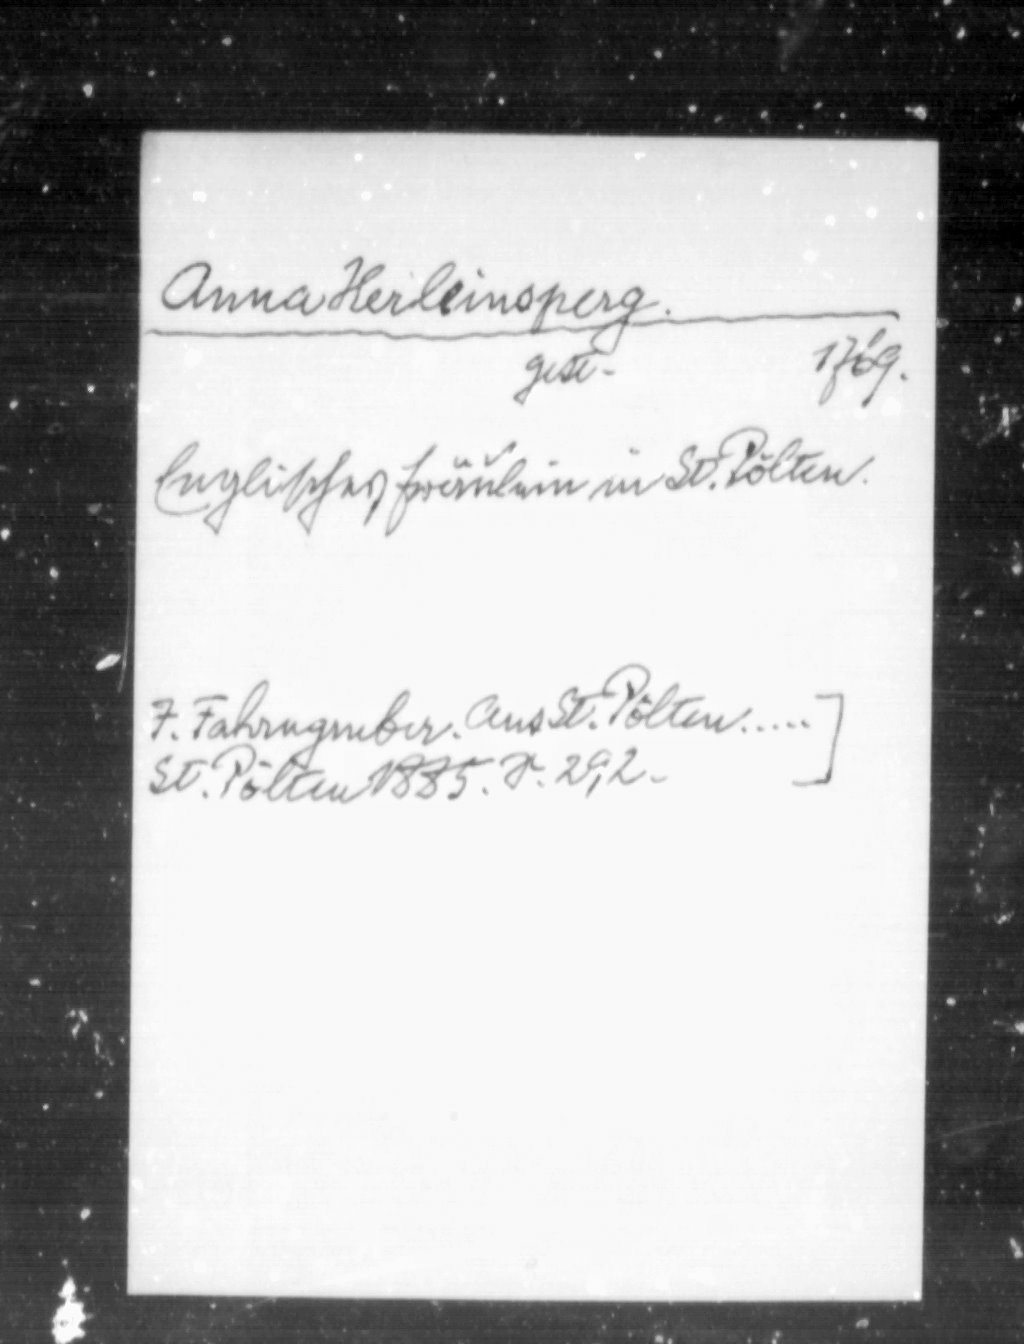 Anna Herleinsperg.
gest. 1769.
Englisches Fräulein in St. Pölten.
F. Fahrngruber. Aus St. Pölten.....]
St. Pölten 1885. S. 292.